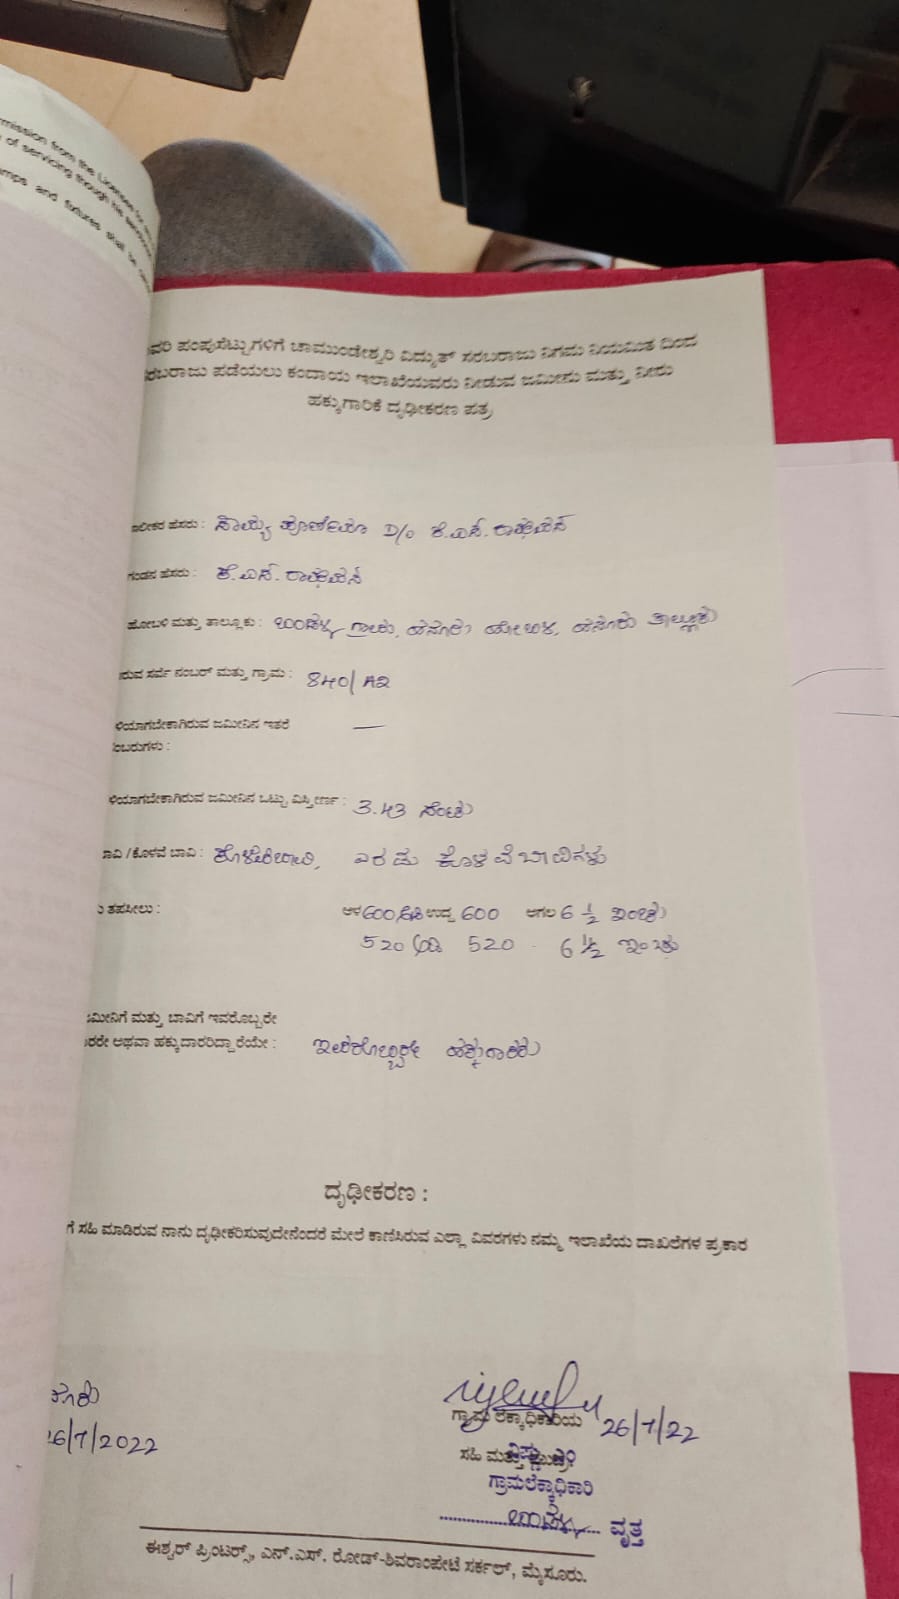 mission from the Licensee for
of servicing though his
amps and fixtures shall be
ಪಂಪುಸೆಟ್ಟುಗಳಿಗೆ ಚಾಮುಂಡೇಶ್ವರಿ ವಿದ್ಯುತ್ ಸರಬರಾಜು ನಿಗಮ ನಿಯಮಿತ ದಿಂದ
ರಬರಾಜು ಪಡೆಯಲು ಕಂದಾಯ ಇಲಾಖೆಯವರು ನೀಡುವ ಜಮೀನು ಮತ್ತು ನೀರು
ಹಕ್ಕುಗಾರಿಕೆ ದೃಢೀಕರಣ ಪತ್ರ
ಾಲೀಕರ ಹೆಸರು : D/o ಕೆ.ಎಸ್.
ಗಂಡನ ಹೆಸರು : ಕೆ.ಎಸ್.
ಹೋಬಳಿ ಮತ್ತು ತಾಲ್ಲೂಕು : ಗ್ರಾಮ, ಹನೂರು ಹೋಬಳಿ, ಹನೂರು ತಾಲ್ಲೂಕು
ರುವ ಸರ್ವೆ ನಂಬರ್ ಮತ್ತು ಗ್ರಾಮ : 840/A2
ಳಿಯಾಗಬೇಕಾಗಿರುವ ಜಮೀನಿನ ಇತರೆ —
ಂಬರುಗಳು :
ಳಿಯಾಗಬೇಕಾಗಿರುವ ಜಮೀನಿನ ಒಟ್ಟು ವಿಸ್ತೀರ್ಣ : 3.43 ಸೆಂಟು
ಾವಿ / ಕೊಳವೆ ಬಾವಿ : ಎರಡು ಕೊಳವೆ ಬಾವಿಗಳು
ು ತಪಸೀಲು : ಆಳ 600 ಅಡಿ ಉದ್ದ 600 ಅಗಲ 6 1/2 ಇಂಚು
520 ಅಡಿ 520 - 6 1/2 ಇಂಚು
ಜಮೀನಿಗೆ ಮತ್ತು ಬಾವಿಗೆ ಇವರೊಬ್ಬರೇ
ಾರರೇ ಅಥವಾ ಹಕ್ಕುದಾರರಿದ್ದಾರೆಯೇ : ಇವರೊಬ್ಬರೇ ಹಕ್ಕುದಾರರು
ದೃಢೀಕರಣ :
ಗೆ ಸಹಿ ಮಾಡಿರುವ ನಾನು ದೃಢೀಕರಿಸುವುದೇನೆಂದರೆ ಮೇಲೆ ಕಾಣಿಸಿರುವ ಎಲ್ಲಾ ವಿವರಗಳು ನಮ್ಮ ಇಲಾಖೆಯ ದಾಖಲೆಗಳ ಪ್ರಕಾರ
6/7/2022
ಗ್ರಾಮ ಲೆಕ್ಕಾಧಿಕಾರಿಯ 26/7/22
ಸಹಿ ಮತ್ತು
ಗ್ರಾಮಲೆಕ್ಕಾಧಿಕಾರಿ
ವೃತ್ತ
ಈಶ್ವರ್ ಪ್ರಿಂಟರ್‍ಸ್, ಎನ್.ಎಸ್. ರೋಡ್-ಶಿವರಾಂಪೇಟೆ ಸರ್ಕಲ್, ಮೈಸೂರು.